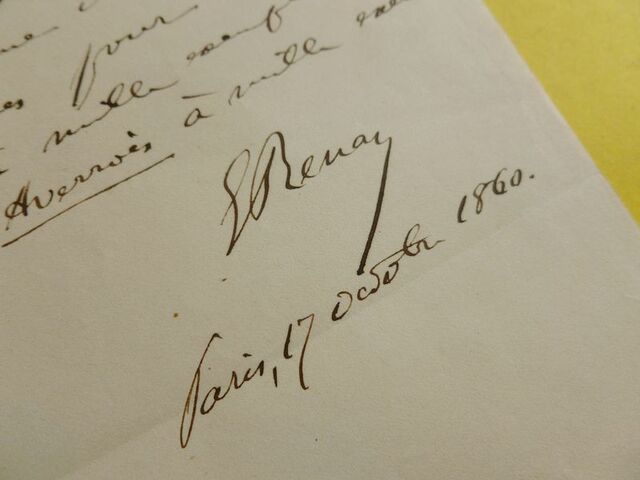 pour
mille
Averroès à mille
E Renan
Paris, 17 octobre 1860.